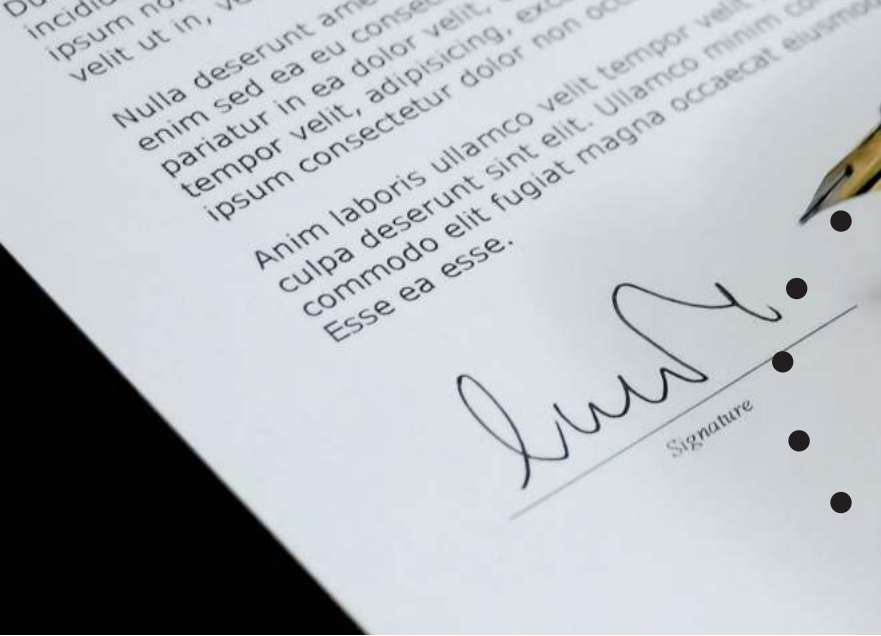 Du
incidid
ipsum no
velit ut in, ve
Nulla deserunt ame
enim sed ea eu consec
pariatur in ea dolor velit,
tempor velit, adipisicing, exc
ipsum consectetur dolor non occ
Anim laboris ullamco velit tempor velit
culpa deserunt sint elit. Ullamco minim co
commodo elit fugiat magna occaecat eiusmod
Esse ea esse.
Signature